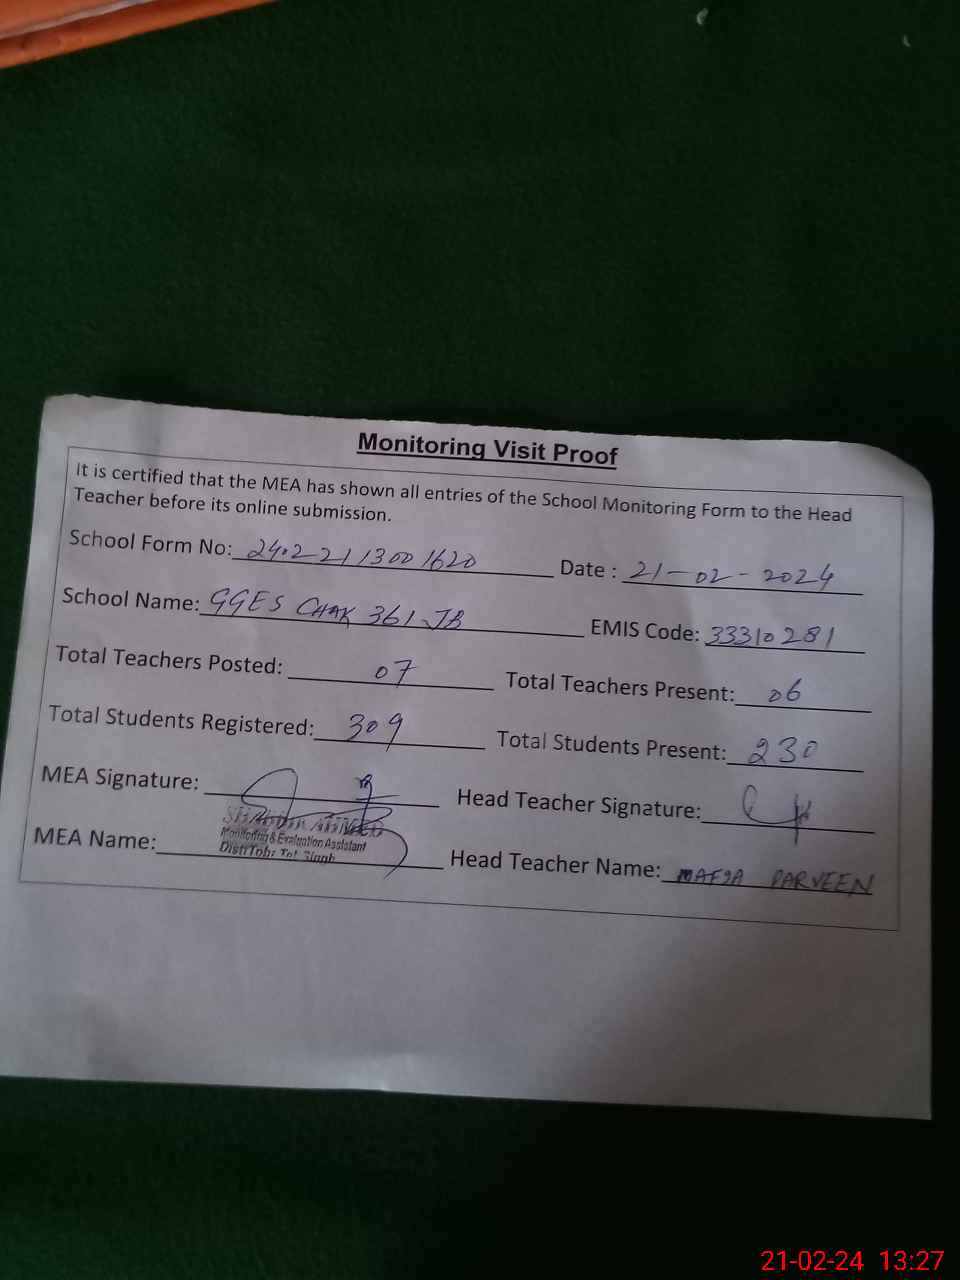 Monitoring Visit Proof
It is certified that the MEA has shown all entries of the School Monitoring Form to the Head
Teacher before its online submission.
School Form No: 24022113001620 Date : 21-02-2024
School Name: GGES CHAK 361 JB EMIS Code: 33310281
Total Teachers Posted: 07 Total Teachers Present: 06
Total Students Registered: 309 Total Students Present: 230
MEA Signature: Head Teacher Signature:
Monitoring & Evaluation Assistant
MEA Name: Head Teacher Name: PARVEEN
21-02-24 13:27